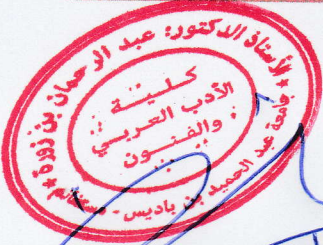 الأستاذ الدكتور: عبد الرحمان بن زورة
كليـة
الأدب العربي
والفنـون
جامعة عبد الحميد بن باديس - مستغانم